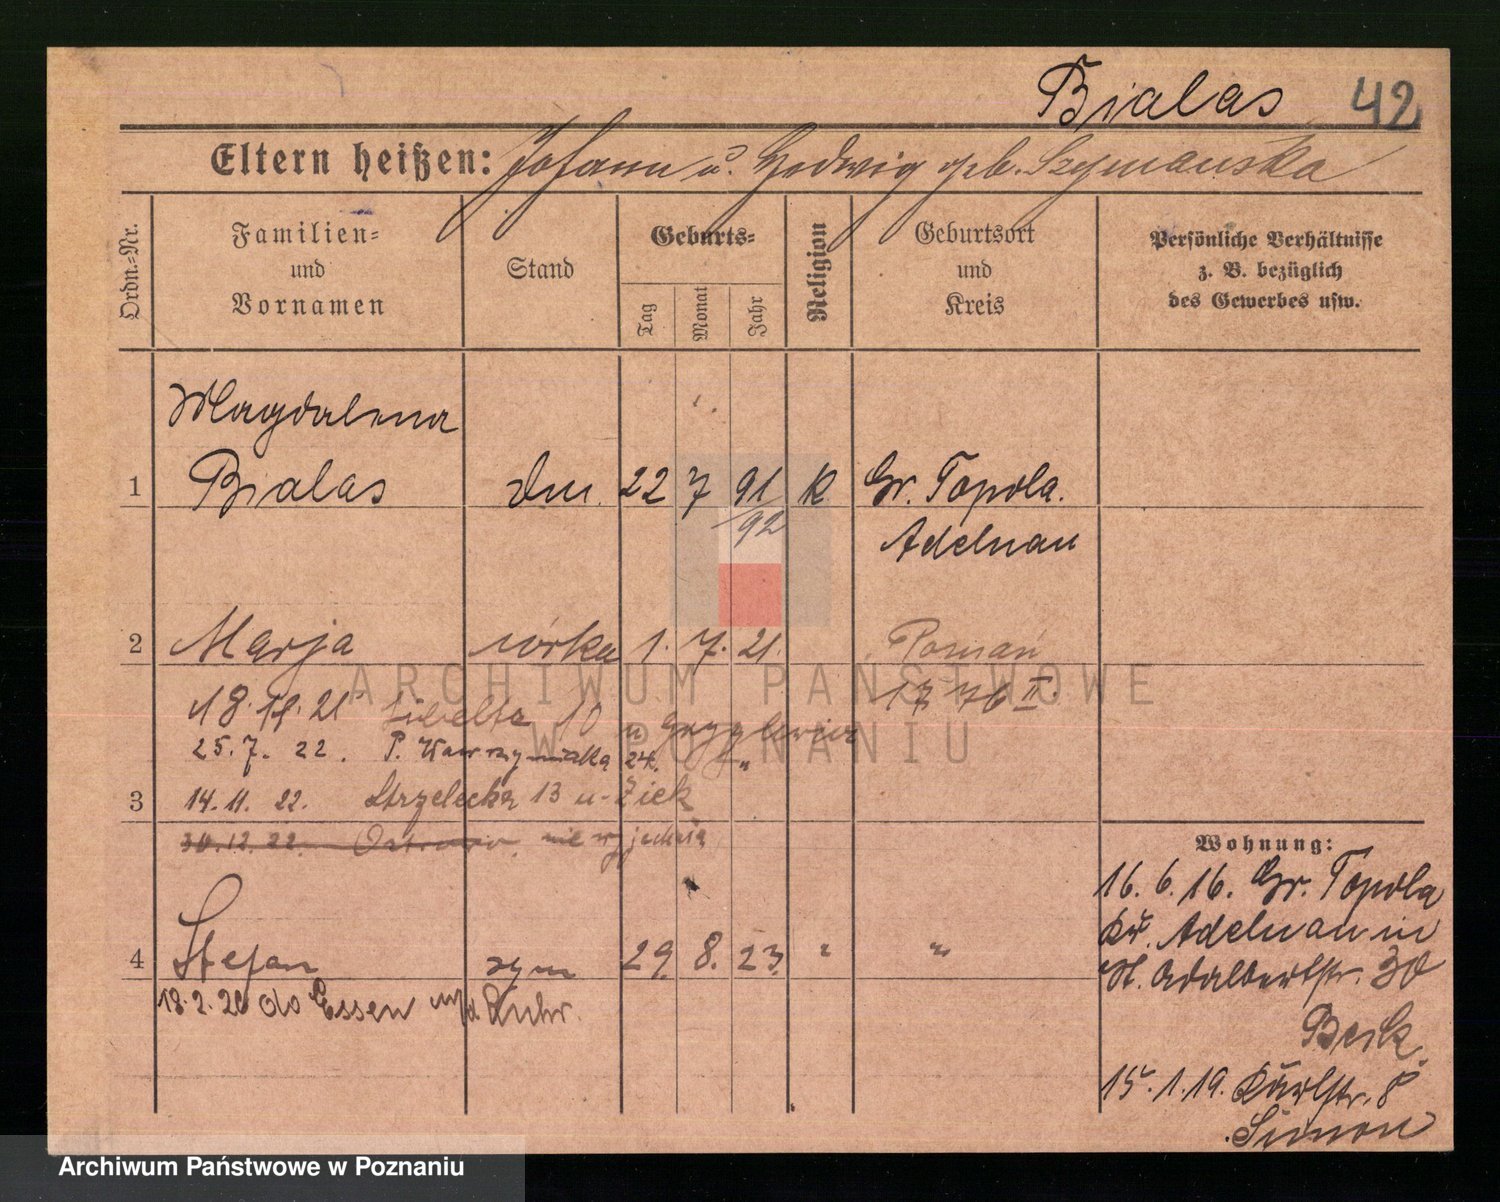 Bialas 42
Eltern heißen: Johann u. Hedwig geb. Szymanska
Ordn.-Nr.
Familien-
und
Vornamen
Stand
Geburts-
Tag
Monat
Jahr
Religion
Geburtsort
und
Kreis
Persönliche Verhältnisse
z. B. bezüglich
des Gewerbes usw.
Magdalena
1 Bialas 22 7 91 k Gr. Topola.
92
Adelnau
2 Marja córka 1. 7. 21. Poznań
1776 II.
18. 11. 21 Libelta 10 u
25. 7. 22. P. Wawrzyniaka 24. "
3 14. 11. 22. Strzelecka 13 u
30.12.22. Ostrowo. nie wyjechała
4 Stefan syn 29. 8. 23. " "
18.2.26 do Essen n/d Ruhr.
Wohnung:
16. 6. 16. Gr. Topola
Kr. Adelnau in
St. Adalbertstr. 30
15. 1. 19. 8
Simon
ARCHIWUM PAŃSTWOWE
W POZNANIU
Archiwum Państwowe w Poznaniu